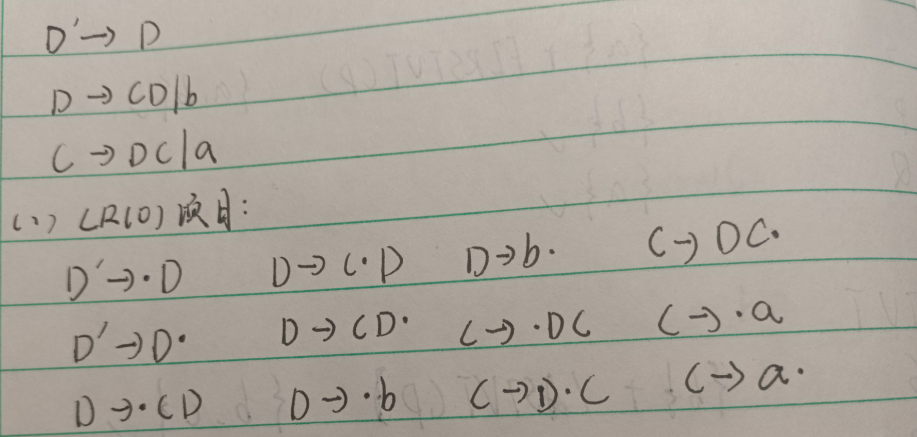 D′→ D
D → CD|b
C → DC|a
(1) LR(0) 项目:
D′→·D D→C·D D→b· C→DC·
D′→D· D→CD· C→·DC C→·a
D→·CD D→·b C→D·C C→a·